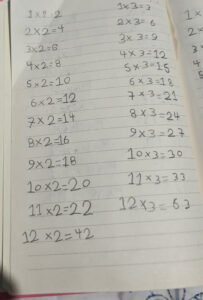 1×2=2
2×2=4
3×2=6
4×2=8
5×2=10
6×2=12
7×2=14
8×2=16
9×2=18
10×2=20
11×2=22
12×2=42
1×3=3
2×3=6
3×3=9
4×3=12
5×3=15
6×3=18
7×3=21
8×3=24
9×3=27
10×3=30
11×3=33
12×3=63
1×
2×
3
4